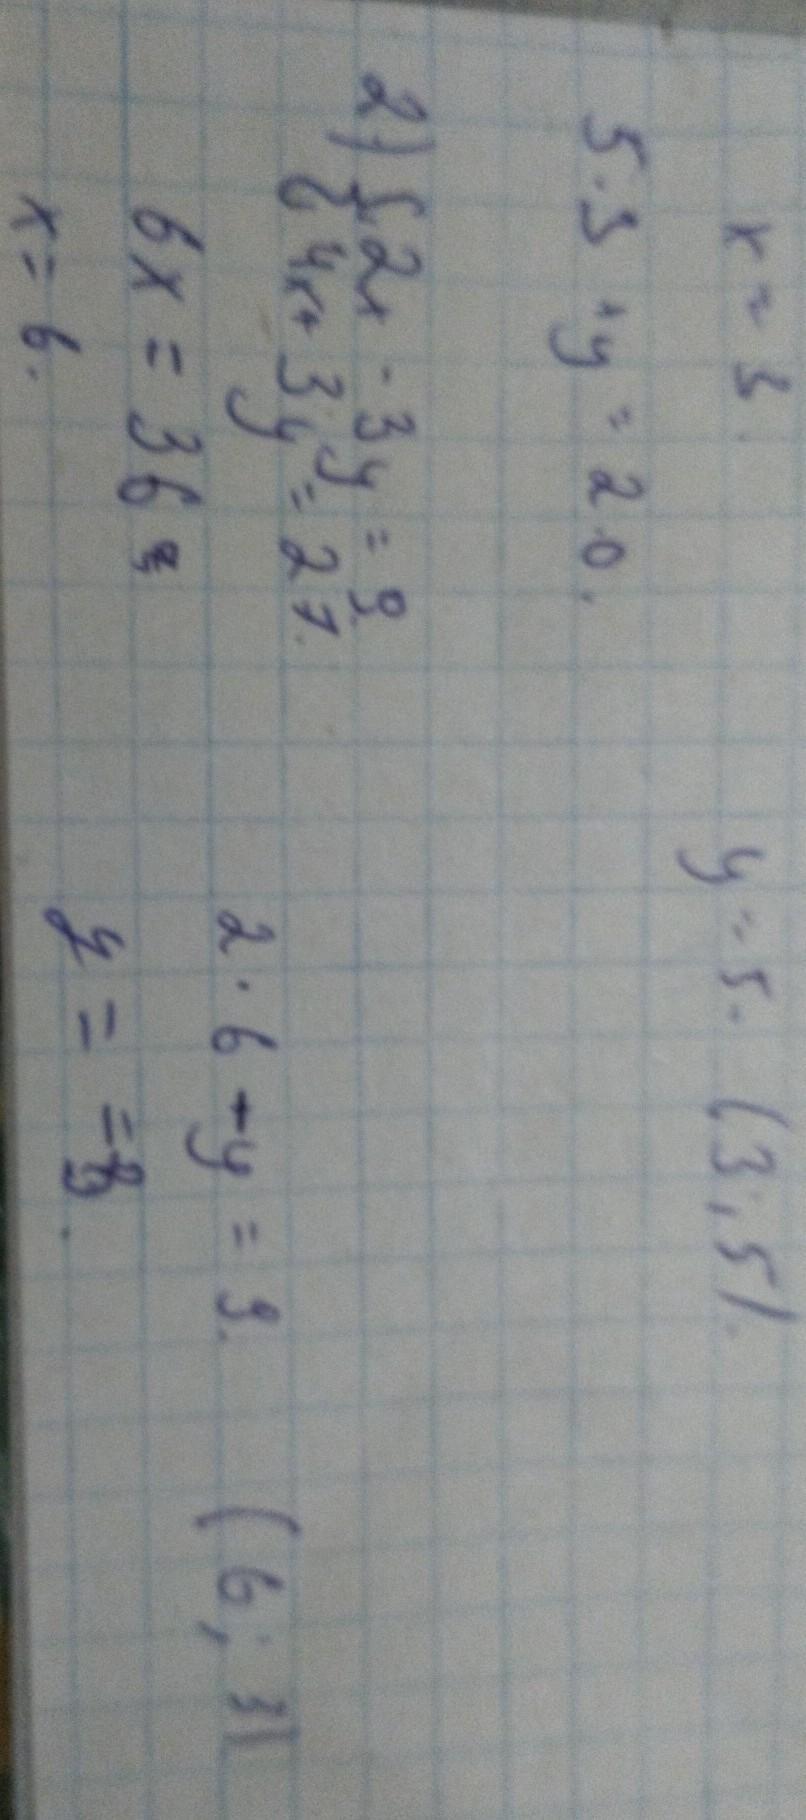 x = 3.
5·3 + y = 20.
y = 5. (3; 5).
2) { 2x - 3y = 9.
4x + 3y = 27.
6x = 36
x = 6.
2 · 6 + y = 9.
y = = 3.
(6; 3)